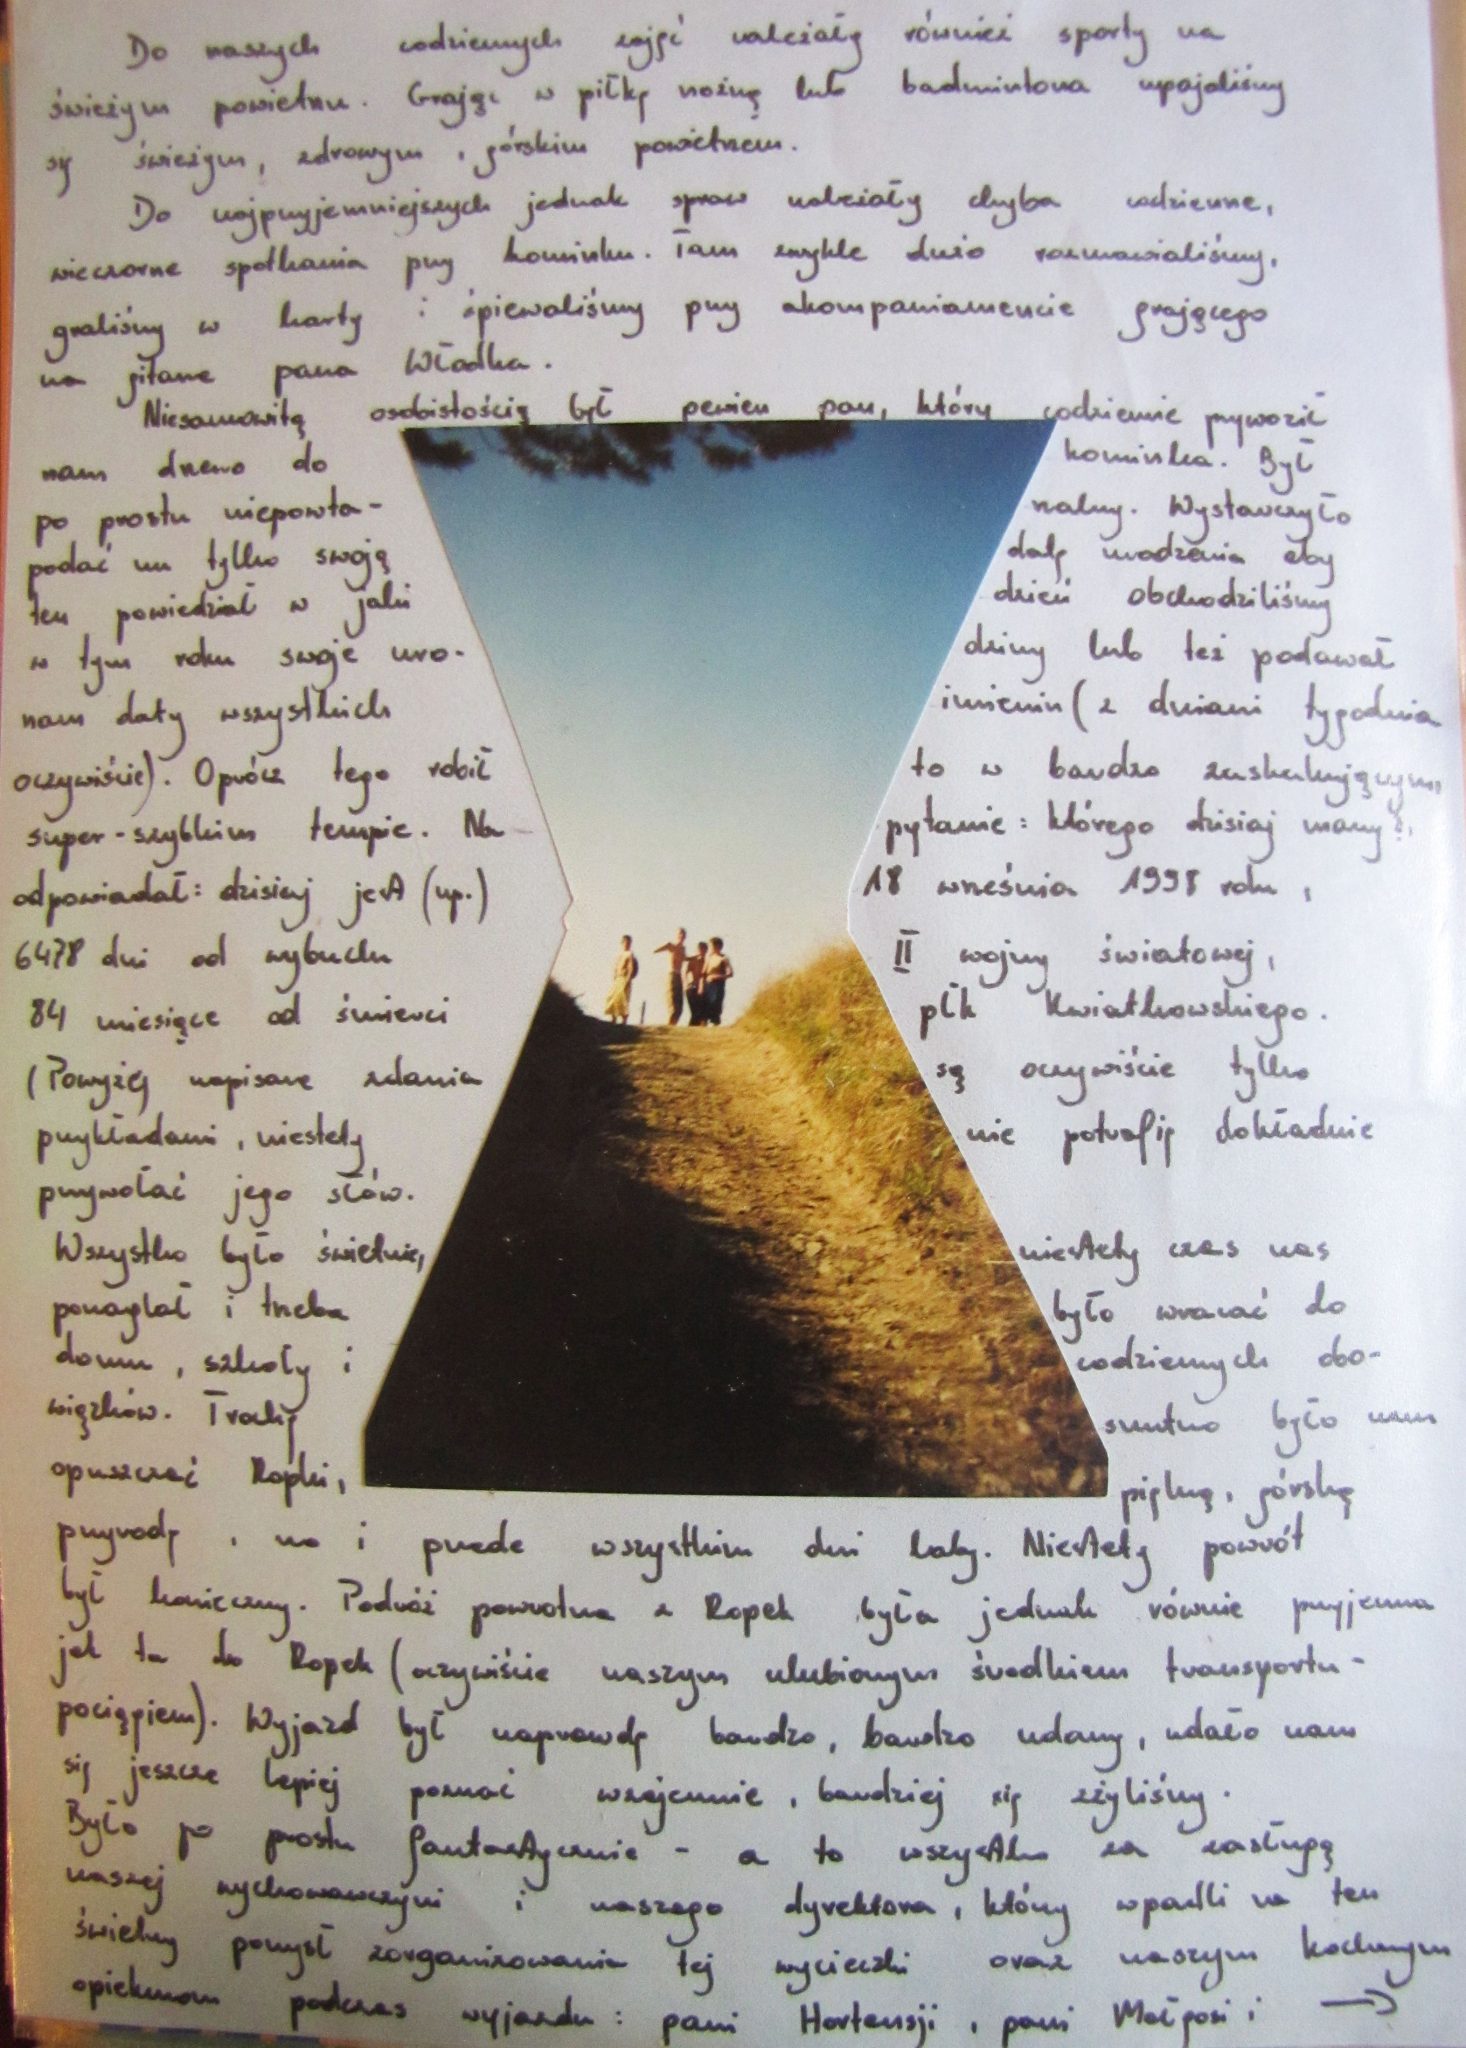 Do naszych codziennych zajęć należały również sporty na
świeżym powietrzu. Grając w piłkę nożną lub badmintona upajaliśmy
się świeżym, zdrowym, górskim powietrzem.
Do najprzyjemniejszych jednak spraw należały chyba codzienne,
wieczorne spotkania przy kominku. Tam zwykle dużo rozmawialiśmy,
graliśmy w karty i śpiewaliśmy przy akompaniamencie grającego
na gitarze pana Władka.
Niesamowitą osobistością był pewien pan, który codziennie przywoził
nam drewo do kominka. Był
po prostu niepowta- rzalny. Wystarczyło
podać mu tylko swoją datę urodzenia aby
ten powiedział w jaki dzień obchodziliśmy
w tym roku swoje uro- dziny lub też podawał
nam daty wszystkich imienin (z dniami tygodnia
oczywiście). Oprócz tego robił to w bardzo zaskakującym,
super-szybkim tempie. Na pytanie: którego dzisiaj mamy?,
odpowiadał: dzisiaj jest (np.) 18 września 1998 roku,
6478 dni od wybuchu II wojny światowej,
84 miesiące od śmierci płk Kwiatkowskiego.
(Powyżej napisane zdania są oczywiście tylko
przykładami, niestety nie potrafię dokładnie
przywołać jego słów.
Wszystko było świetnie, niestety czas nas
ponaglał i trzeba było wracać do
domu, szkoły i codziennych obo-
wiązków. Trochę smutno było nam
opuszczać Ropki, piękną, górską
przyrodę, no i przede wszystkim dni laby. Niestety powrót
był konieczny. Podróż powrotna z Ropek była jednak równie przyjemna
jak ta do Ropek (oczywiście naszym ulubionym środkiem transportu -
pociągiem). Wyjazd był naprawdę bardzo, bardzo udany, udało nam
się jeszcze lepiej poznać wzajemnie, bardziej się zżyliśmy.
Było po prostu fantastycznie - a to wszystko za zasługą
naszej wychowawczyni i naszego dyrektora, którzy wpadli na ten
świetny pomysł zorganizowania tej wycieczki oraz naszym kochanym
opiekunom podczas wyjazdu: pani Hortensji, pani Małgosi i →